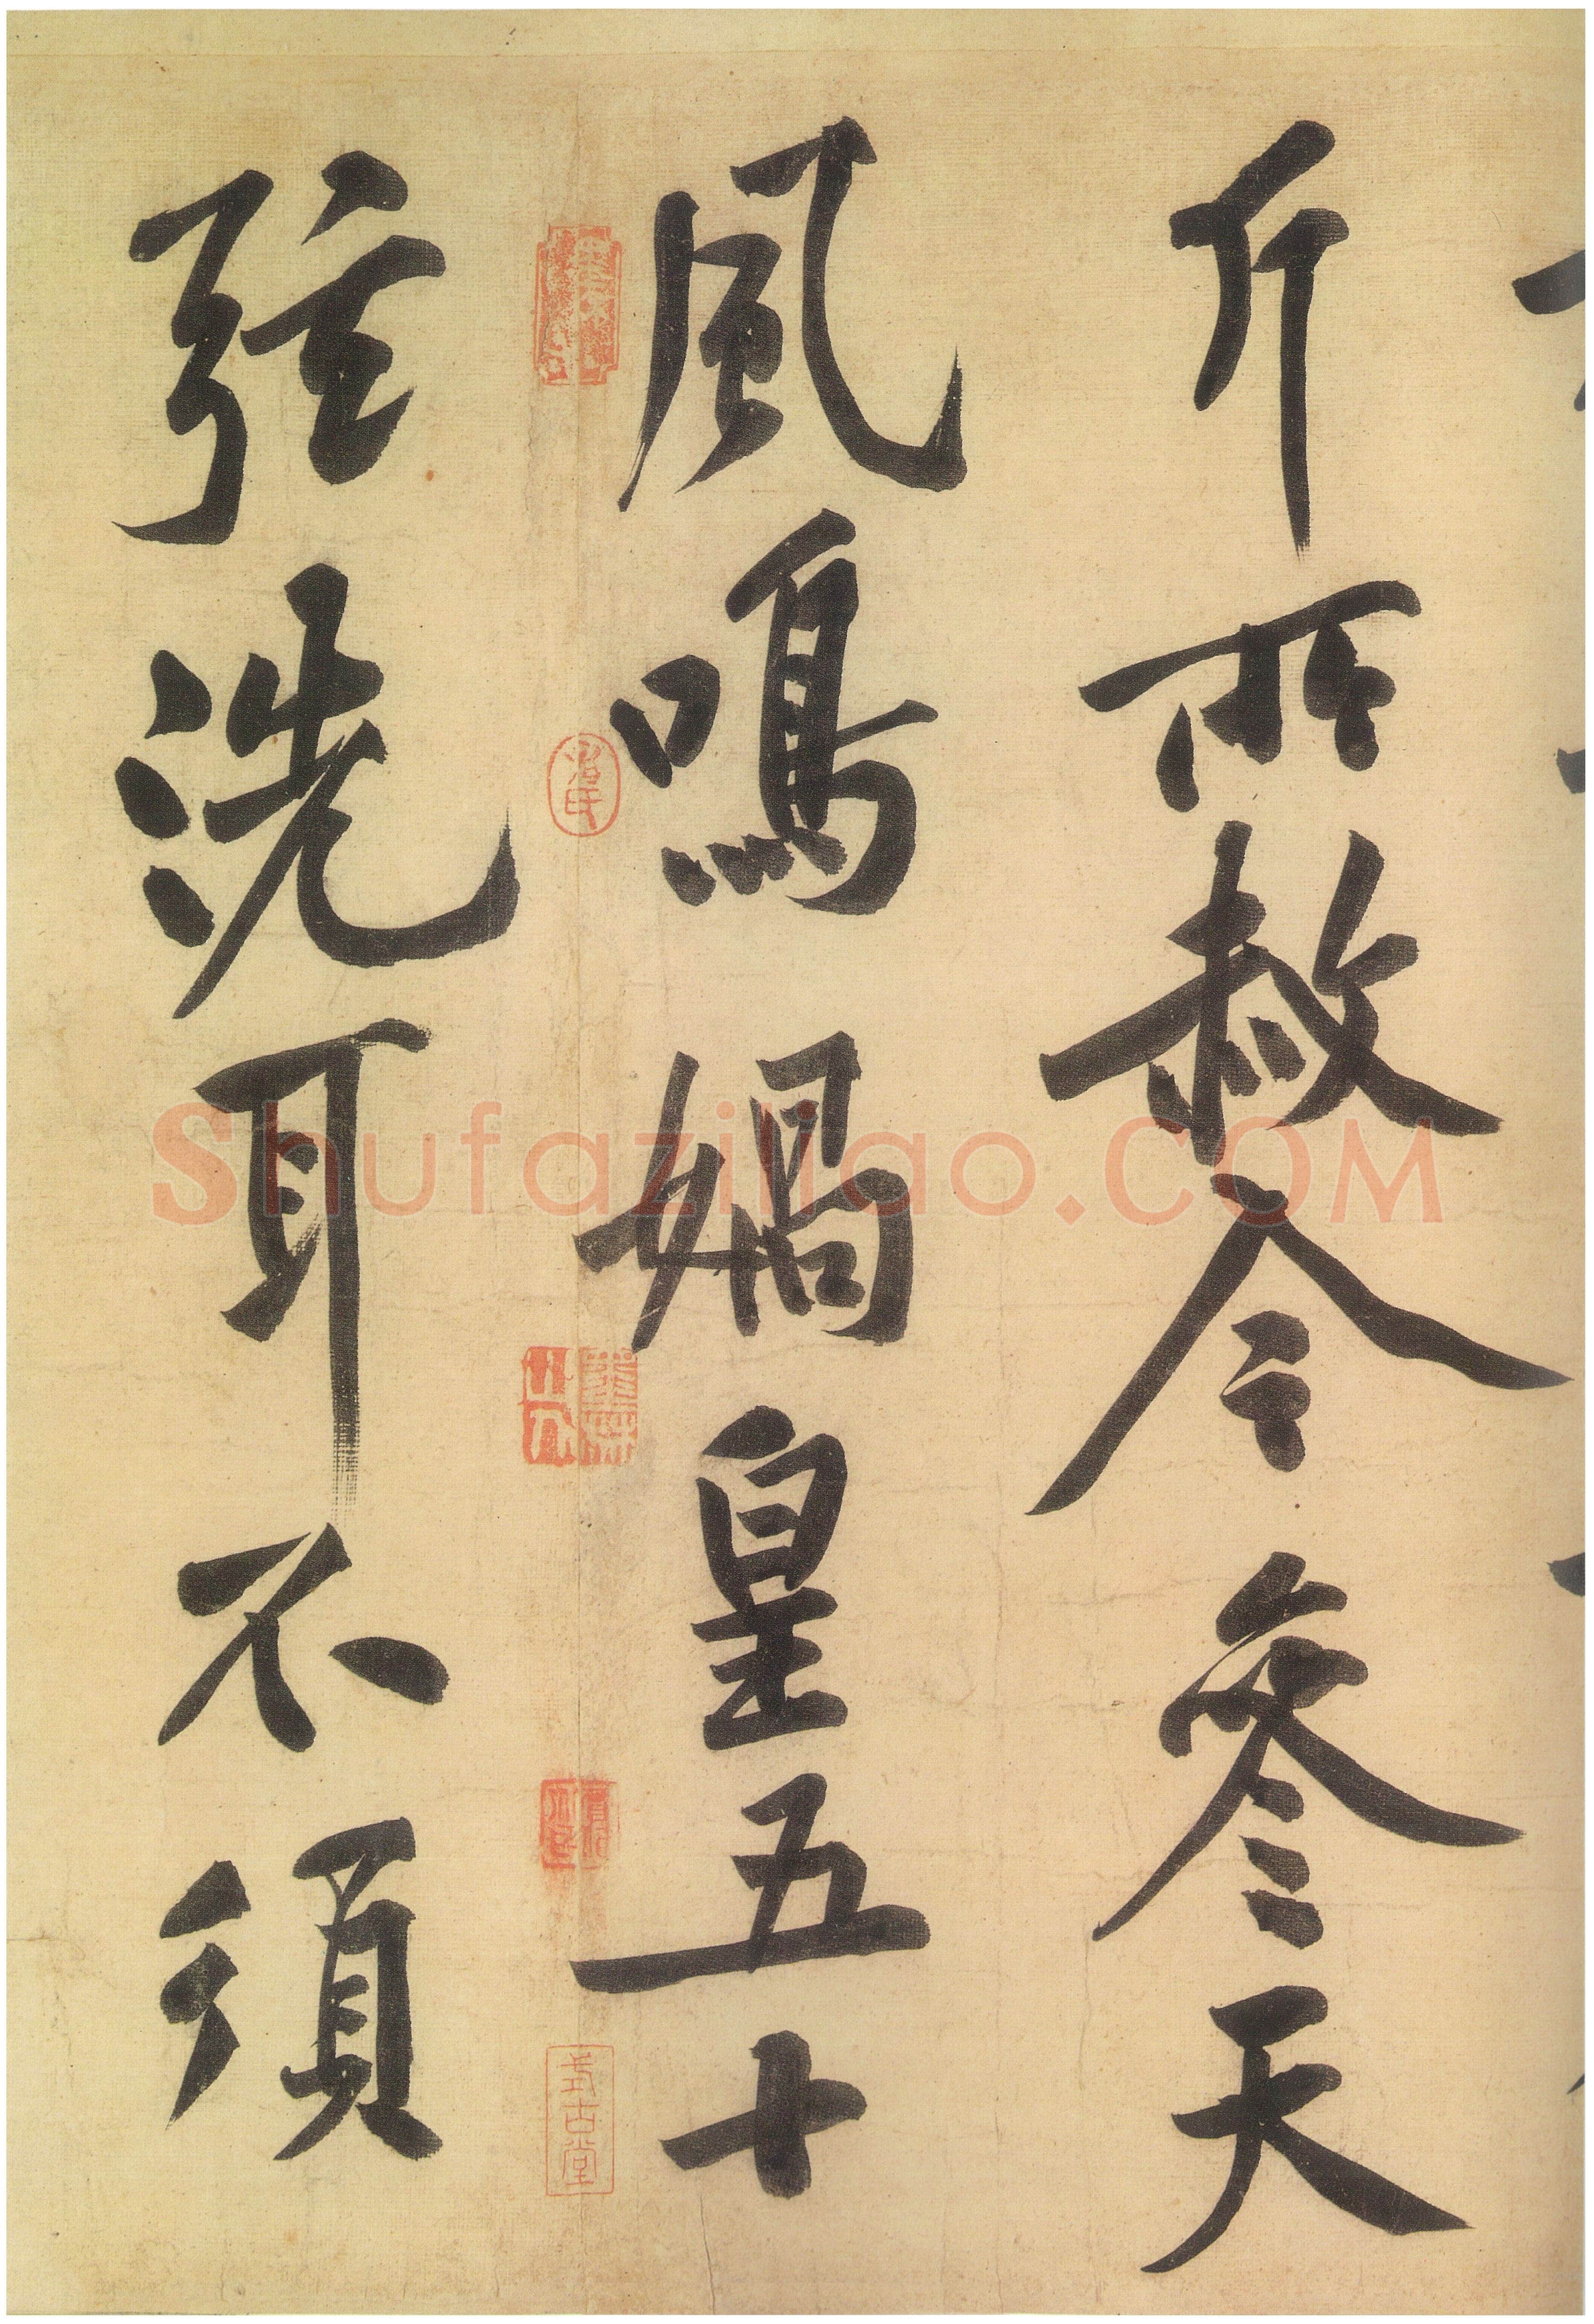 斤所赦今參天
風鳴媧皇五十
弦洗耳不須
式古堂
Shufaziliao.COM